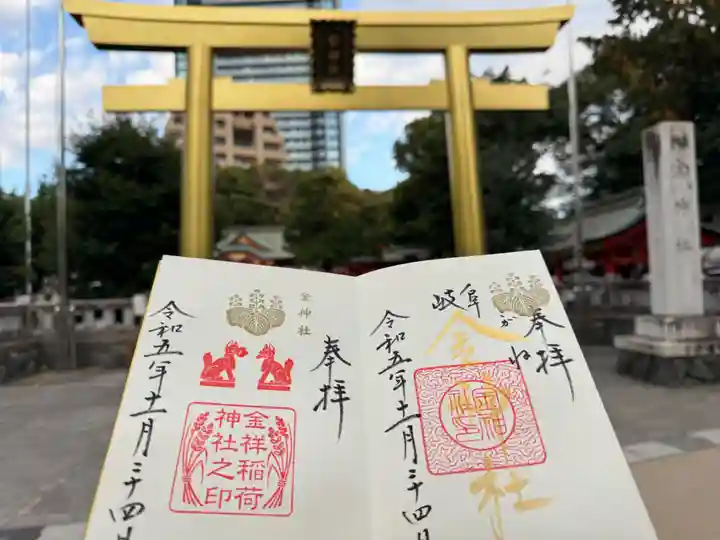 岐阜
がね
奉拝
金神社
令和五年十一月二十四日
奉拝
金神社
金祥稲荷
神社之印
令和五年十一月二十四日
金神社